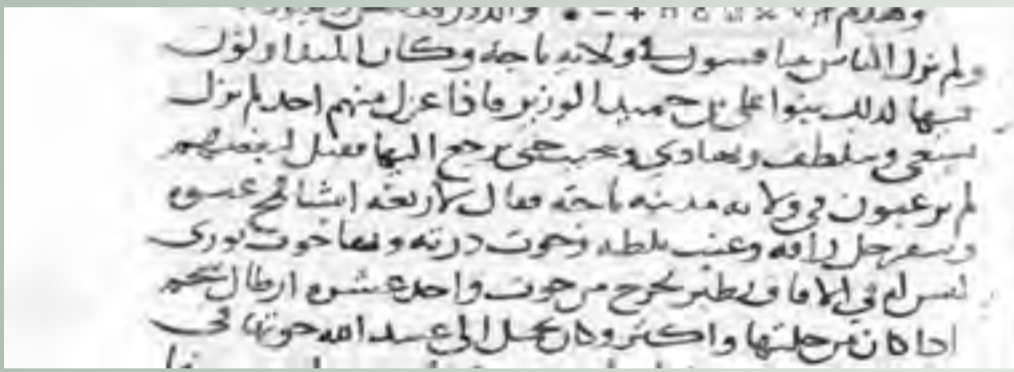 ولم تزل الناس يتنافسون في ولاية باجة وكان المتداولون
لها لذلك بنوا علي بن حميد الوزير فاذا عزل منهم احد لم يزل
يسعى ويتلطف ويهادي حتى يرجع اليها فقيل لبعضهم
لم ترغبون في ولاية مدينة باجة فقال لاربعة اشيا قمح عبدة
وسفرجل زانة وعنب بلطة وحوت درنة وبها حوت بوري
ليس له في الافاق نظير يخرج من حوت واحد عشرة ارطال شحم
اذا كان من جلتها واكثر وكان يحمل الى عبيد الله حوتها في